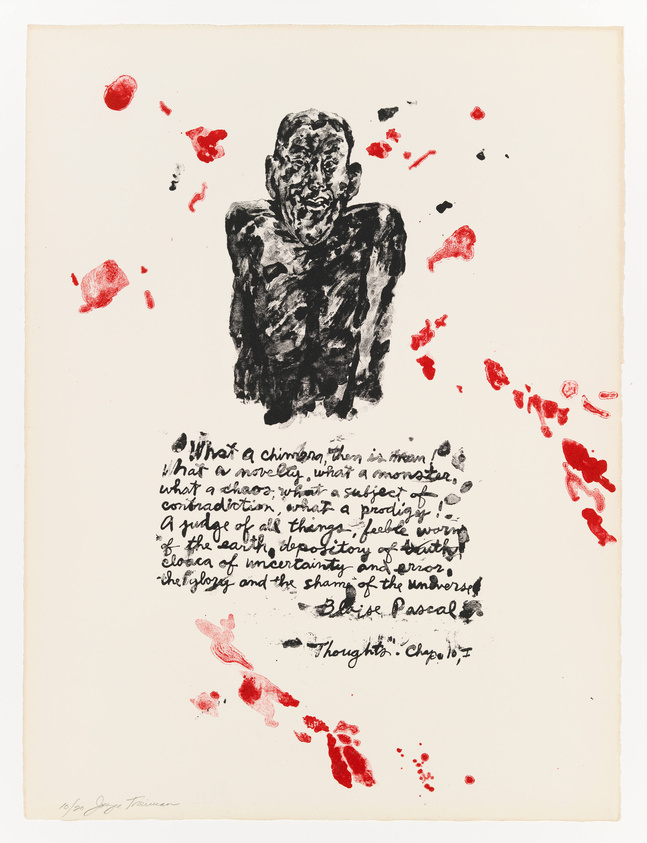 What a chimera, then is man!
What a novelty, what a monster,
what a chaos, what a subject of
contradiction, what a prodigy!
A judge of all things, feeble worm
of the earth, depository of truth,
cloaca of uncertainty and error,
the glory and the shame of the universe!
Blaise Pascal
"Thoughts". Chap. 10, I
10/20